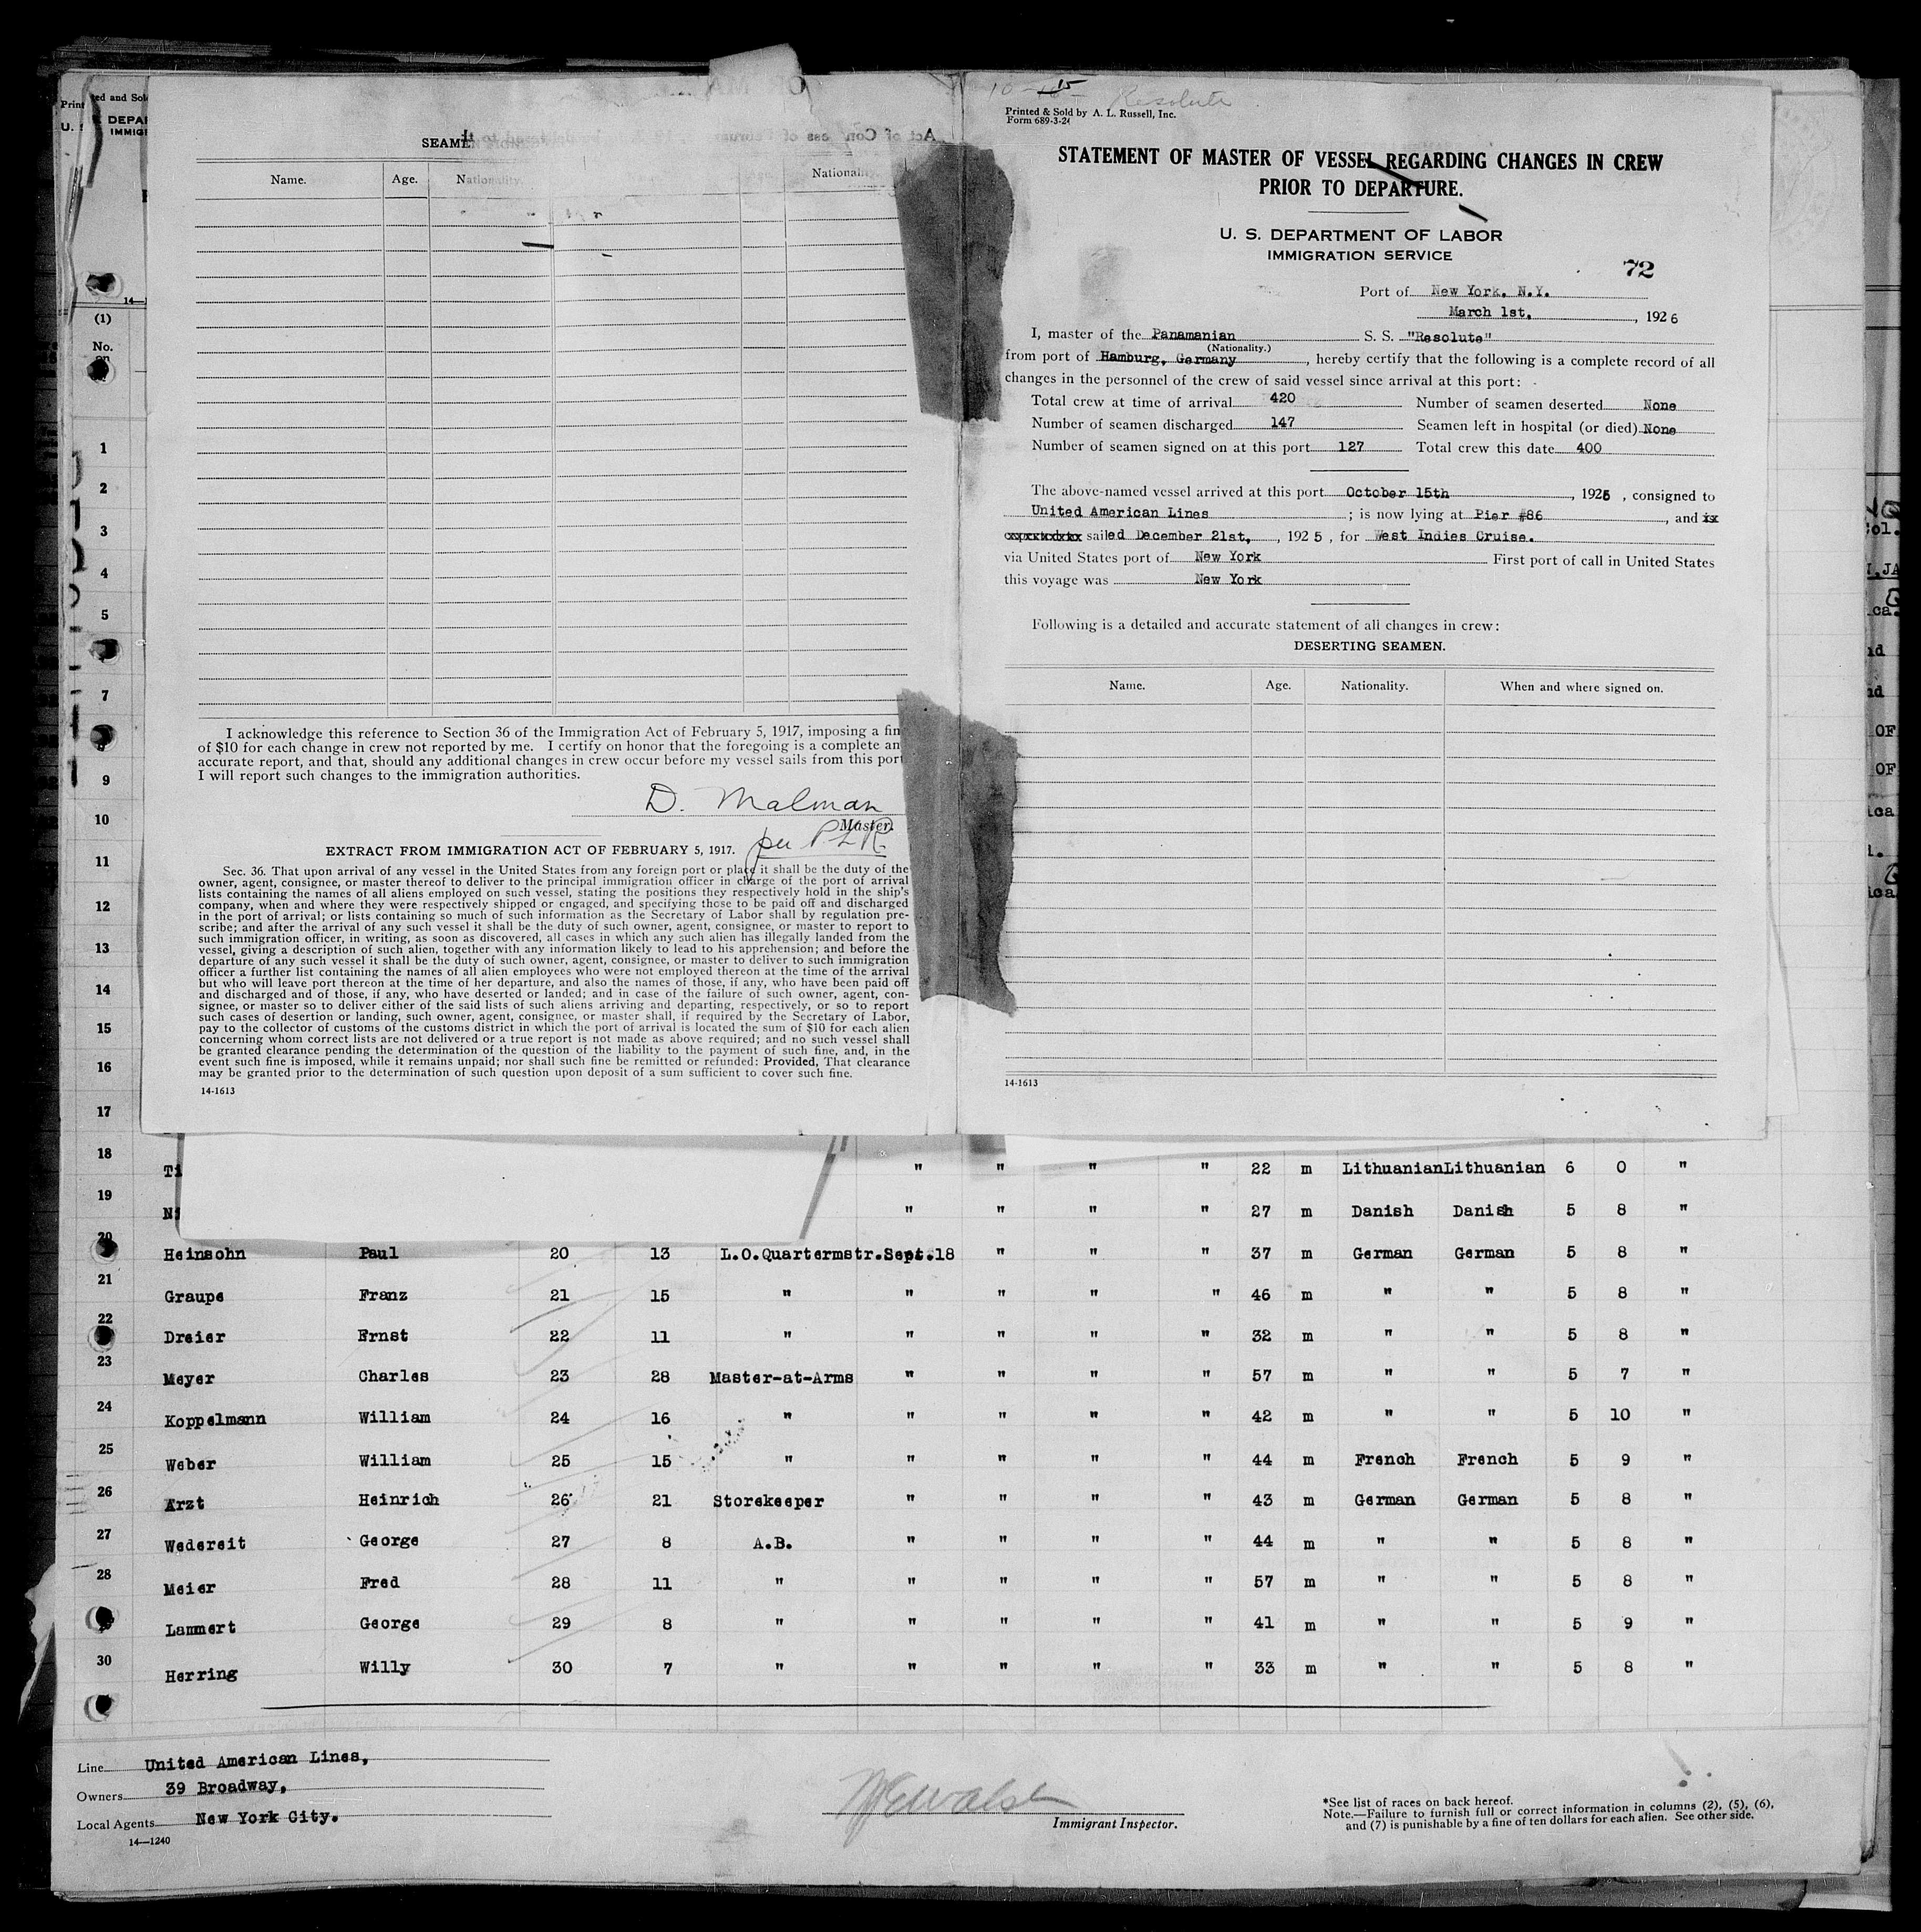 SEAME
Name. Age. Nationality. Nationality.
I acknowledge this reference to Section 36 of the Immigration Act of February 5, 1917, imposing a fin
of $10 for each change in crew not reported by me. I certify on honor that the foregoing is a complete an
accurate report, and that, should any additional changes in crew occur before my vessel sails from this port
I will report such changes to the immigration authorities.
D. Malman
Master.
per P L R
EXTRACT FROM IMMIGRATION ACT OF FEBRUARY 5, 1917.
Sec. 36. That upon arrival of any vessel in the United States from any foreign port or place it shall be the duty of the
owner, agent, consignee, or master thereof to deliver to the principal immigration officer in charge of the port of arrival
lists containing the names of all aliens employed on such vessel, stating the positions they respectively hold in the ship's
company, when and where they were respectively shipped or engaged, and specifying those to be paid off and discharged
in the port of arrival; or lists containing so much of such information as the Secretary of Labor shall by regulation pre-
scribe; and after the arrival of any such vessel it shall be the duty of such owner, agent, consignee, or master to report to
such immigration officer, in writing, as soon as discovered, all cases in which any such alien has illegally landed from the
vessel, giving a description of such alien, together with any information likely to lead to his apprehension; and before the
departure of any such vessel it shall be the duty of such owner, agent, consignee, or master to deliver to such immigration
officer a further list containing the names of all alien employees who were not employed thereon at the time of the arrival
but who will leave port thereon at the time of her departure, and also the names of those, if any, who have been paid off
and discharged and of those, if any, who have deserted or landed; and in case of the failure of such owner, agent, con-
signee, or master so to deliver either of the said lists of such aliens arriving and departing, respectively, or so to report
such cases of desertion or landing, such owner, agent, consignee, or master shall, if required by the Secretary of Labor,
pay to the collector of customs of the customs district in which the port of arrival is located the sum of $10 for each alien
concerning whom correct lists are not delivered or a true report is not made as above required; and no such vessel shall
be granted clearance pending the determination of the question of the liability to the payment of such fine, and, in the
event such fine is imposed, while it remains unpaid; nor shall such fine be remitted or refunded: Provided, That clearance
may be granted prior to the determination of such question upon deposit of a sum sufficient to cover such fine.
14-1613
15 Resolute
Printed & Sold by A. L. Russell, Inc.
Form 689-3-24
STATEMENT OF MASTER OF VESSEL REGARDING CHANGES IN CREW
PRIOR TO DEPARTURE.
U. S. DEPARTMENT OF LABOR
IMMIGRATION SERVICE
72
Port of New York, N.Y.
March 1st, , 1926
I, master of the Panamanian S. S. "Resolute"
(Nationality.)
from port of Hamburg, Germany , hereby certify that the following is a complete record of all
changes in the personnel of the crew of said vessel since arrival at this port:
Total crew at time of arrival 420 Number of seamen deserted None
Number of seamen discharged 147 Seamen left in hospital (or died) None
Number of seamen signed on at this port 127 Total crew this date 400
The above-named vessel arrived at this port October 15th , 1925 , consigned to
United American Lines ; is now lying at Pier #86 , and
sailed December 21st, , 1925 , for West Indies Cruise.
via United States port of New York First port of call in United States
this voyage was New York
Following is a detailed and accurate statement of all changes in crew:
DESERTING SEAMEN.
Name. Age. Nationality. When and where signed on.
14-1613
(1)
No.
on
1
2
3
4
5
7
9
10
11
12
13
14
15
16
17
18 Ti " " " " 22 m Lithuanian Lithuanian 6 0 "
19 Ni " " " " 27 m Danish Danish 5 8 "
20 Heinsohn Paul 20 13 L.O.Quartermstr. Sept.18 " " " 37 m German German 5 8 "
21 Graupe Franz 21 15 " " " " " 46 m " " 5 8 "
22 Dreier Ernst 22 11 " " " " " 32 m " " 5 8 "
23 Meyer Charles 23 28 Master-at-Arms " " " " 57 m " " 5 7 "
24 Koppelmann William 24 16 " " " " " 42 m " " 5 10 "
25 Weber William 25 15 " " " " " 44 m French French 5 9 "
26 Arzt Heinrich 26 21 Storekeeper " " " " 43 m German German 5 8 "
27 Wedereit George 27 8 A.B. " " " " 44 m " " 5 8 "
28 Meier Fred 28 11 " " " " " 57 m " " 5 8 "
Lammert George 29 8 " " " " " 41 m " " 5 9 "
30 Herring Willy 30 7 " " " " " 33 m " " 5 8 "
Line United American Lines,
Owners 39 Broadway,
Local Agents New York City.
14—1240
Immigrant Inspector.
*See list of races on back hereof.
Note.—Failure to furnish full or correct information in columns (2), (5), (6),
and (7) is punishable by a fine of ten dollars for each alien. See other side.